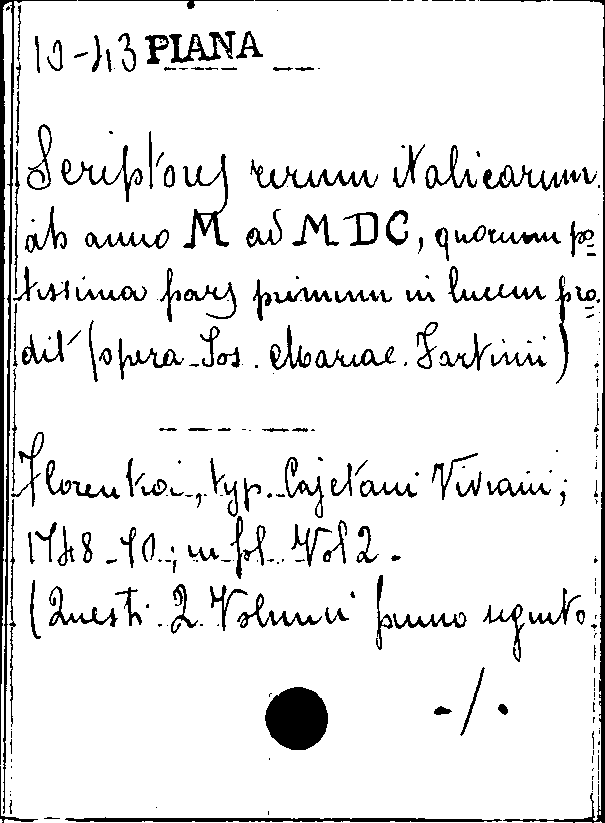 10-43 PIANA
Scriptores rerum italicarum
ab anno M ad MDC, quorum po=
tissima pars primum in lucem pro=
dit (opera Jos. Mariae Tartinii)
Florentiae, typ. Cajetani Viviani;
1748-70; in fol. Vol 2.
(Questi 2 Volumi fanno seguito
-/.